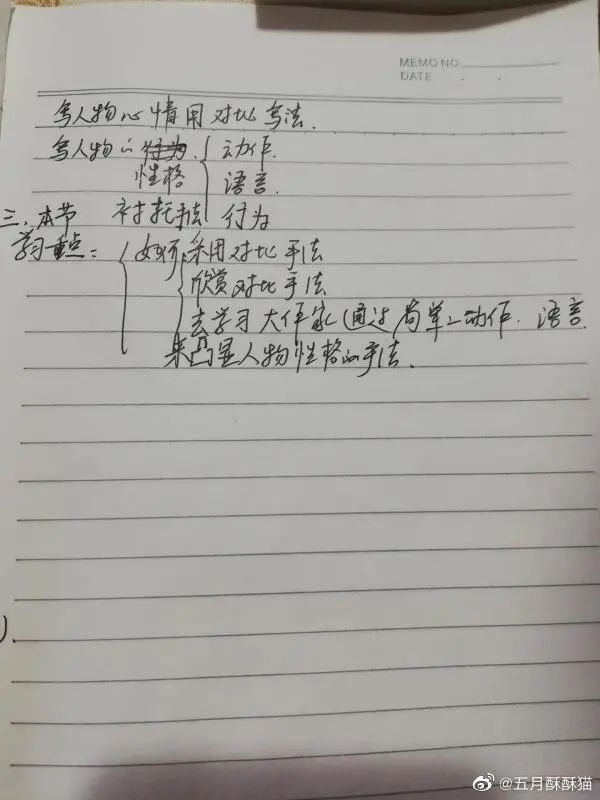 MEMO NO.
DATE . .
写人物心情用对比写法.
写人物的行为. { 动作.
性格 语言.
三、本节 衬托手法 行为
学习重点: { 如何 { 采用对比手法
欣赏对比手法
去学习大作家(通过简单的动作. 语言
来凸显人物性格的手法.
).
@五月酥酥猫